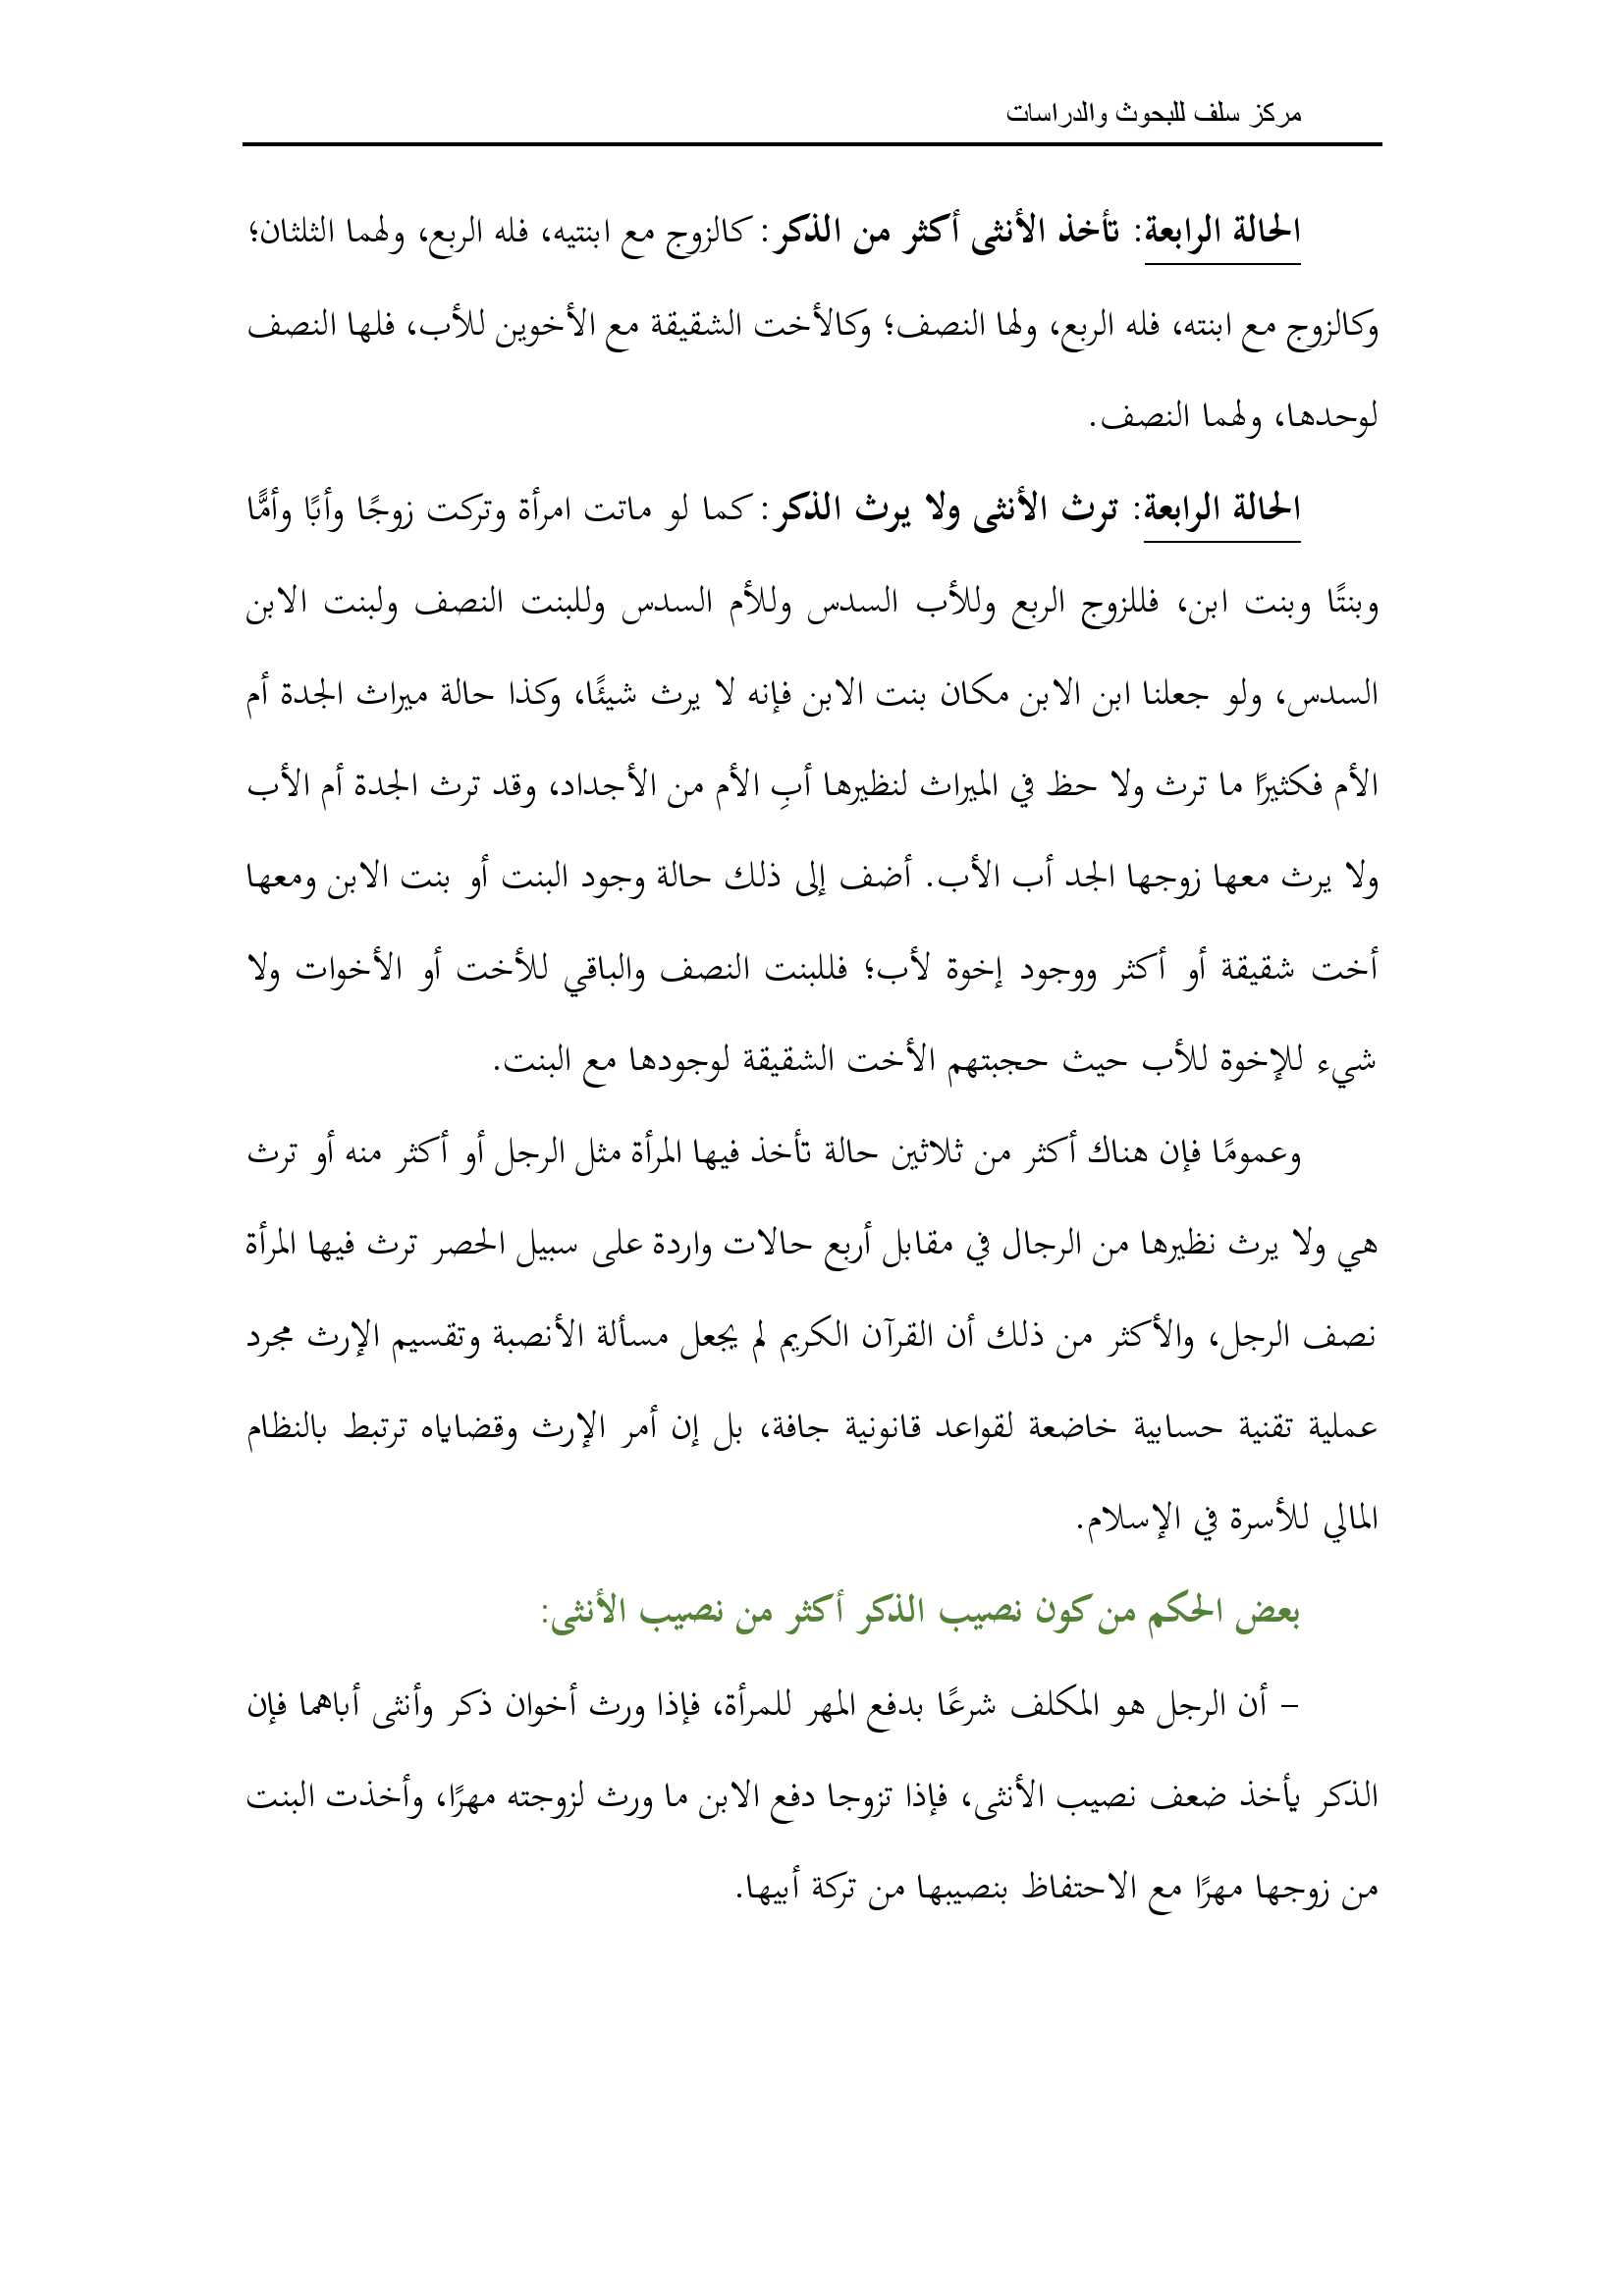 مركز سلف للبحوث والدراسات
الحالة الرابعة: تأخذ الأنثى أكثر من الذكر: كالزوج مع ابنتيه، فله الربع، ولهما الثلثان؛
وكالزوج مع ابنته، فله الربع، ولها النصف؛ وكالأخت الشقيقة مع الأخوين للأب، فلها النصف
لوحدها، ولهما النصف.
الحالة الرابعة: ترث الأنثى ولا يرث الذكر: كما لو ماتت امرأة وتركت زوجًا وأبًا وأمًّا
وبنتًا وبنت ابن، فللزوج الربع وللأب السدس وللأم السدس وللبنت النصف ولبنت الابن
السدس، ولو جعلنا ابن الابن مكان بنت الابن فإنه لا يرث شيئًا، وكذا حالة ميراث الجدة أم
الأم فكثيرًا ما ترث ولا حظ في الميراث لنظيرها أبِ الأم من الأجداد، وقد ترث الجدة أم الأب
ولا يرث معها زوجها الجد أب الأب. أضف إلى ذلك حالة وجود البنت أو بنت الابن ومعها
أخت شقيقة أو أكثر ووجود إخوة لأب؛ فللبنت النصف والباقي للأخت أو الأخوات ولا
شيء للإخوة للأب حيث حجبتهم الأخت الشقيقة لوجودها مع البنت.
وعمومًا فإن هناك أكثر من ثلاثين حالة تأخذ فيها المرأة مثل الرجل أو أكثر منه أو ترث
هي ولا يرث نظيرها من الرجال في مقابل أربع حالات واردة على سبيل الحصر ترث فيها المرأة
نصف الرجل، والأكثر من ذلك أن القرآن الكريم لم يجعل مسألة الأنصبة وتقسيم الإرث مجرد
عملية تقنية حسابية خاضعة لقواعد قانونية جافة، بل إن أمر الإرث وقضاياه ترتبط بالنظام
المالي للأسرة في الإسلام.
بعض الحكم من كون نصيب الذكر أكثر من نصيب الأنثى:
– أن الرجل هو المكلف شرعًا بدفع المهر للمرأة، فإذا ورث أخوان ذكر وأنثى أباهما فإن
الذكر يأخذ ضعف نصيب الأنثى، فإذا تزوجا دفع الابن ما ورث لزوجته مهرًا، وأخذت البنت
من زوجها مهرًا مع الاحتفاظ بنصيبها من تركة أبيها.